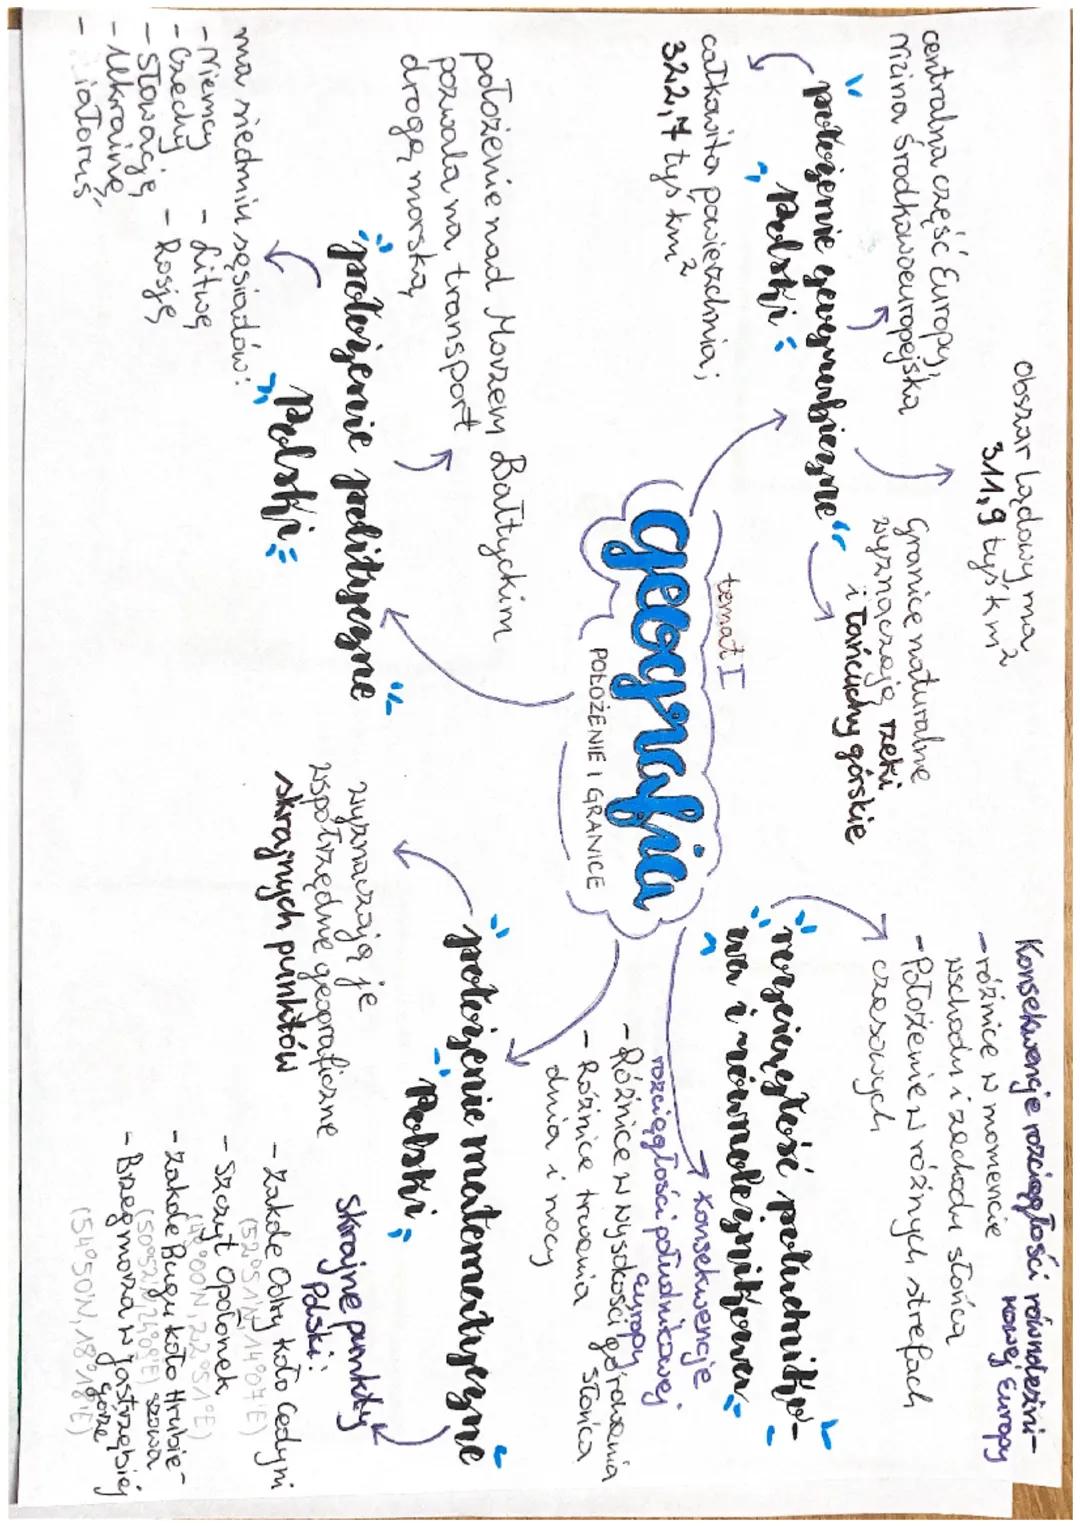 temat I
Geografia
POŁOŻENIE I GRANICE
położenie geograficzne
Polski
centralna część Europy,
Nizina Środkowoeuropejska
obszar lądowy ma
311,9 tyś km²
Granice naturalne
wyznaczają rzeki
i łańcuchy górskie
całkowita powierzchnia;
322,7 tyś km²
położenie polityczne
Polski
położenie nad Morzem Bałtyckim
pozwala na transport
drogą morską
ma siedmiu sąsiadów:
- Niemcy - Litwę
- Czechy - Rosję
- Słowację
- Ukrainę
- iatoruś
rozciągłość południko-
wa i równoleżnikowa
Konsekwencje rozciągłości równoleżni-
kowej Europy
- różnice w momencie
wschodu i zachodu słońca
- Położenie w różnych strefach
czasowych
Konsekwencje
rozciągłości południkowej
Europy
- Różnice w wysokości górowania
słońca
- Różnice trwania
dnia i nocy
położenie matematyczne
Polski
wyznaczają je
współrzędne geograficzne
skrajnych punktów
Skrajne punkty
Polski:
- Zakole Odry koło Cedyni
(52°51'N, 14°07'E)
- Szczyt Opołonek
(49°00'N, 22°51'E)
- Zakole Bugu koło Hrubie-
szowa
(50°52'N, 24°08'E)
- Brzeg morza w Jastrzębiej
górze
(54°50'N, 18°18'E)